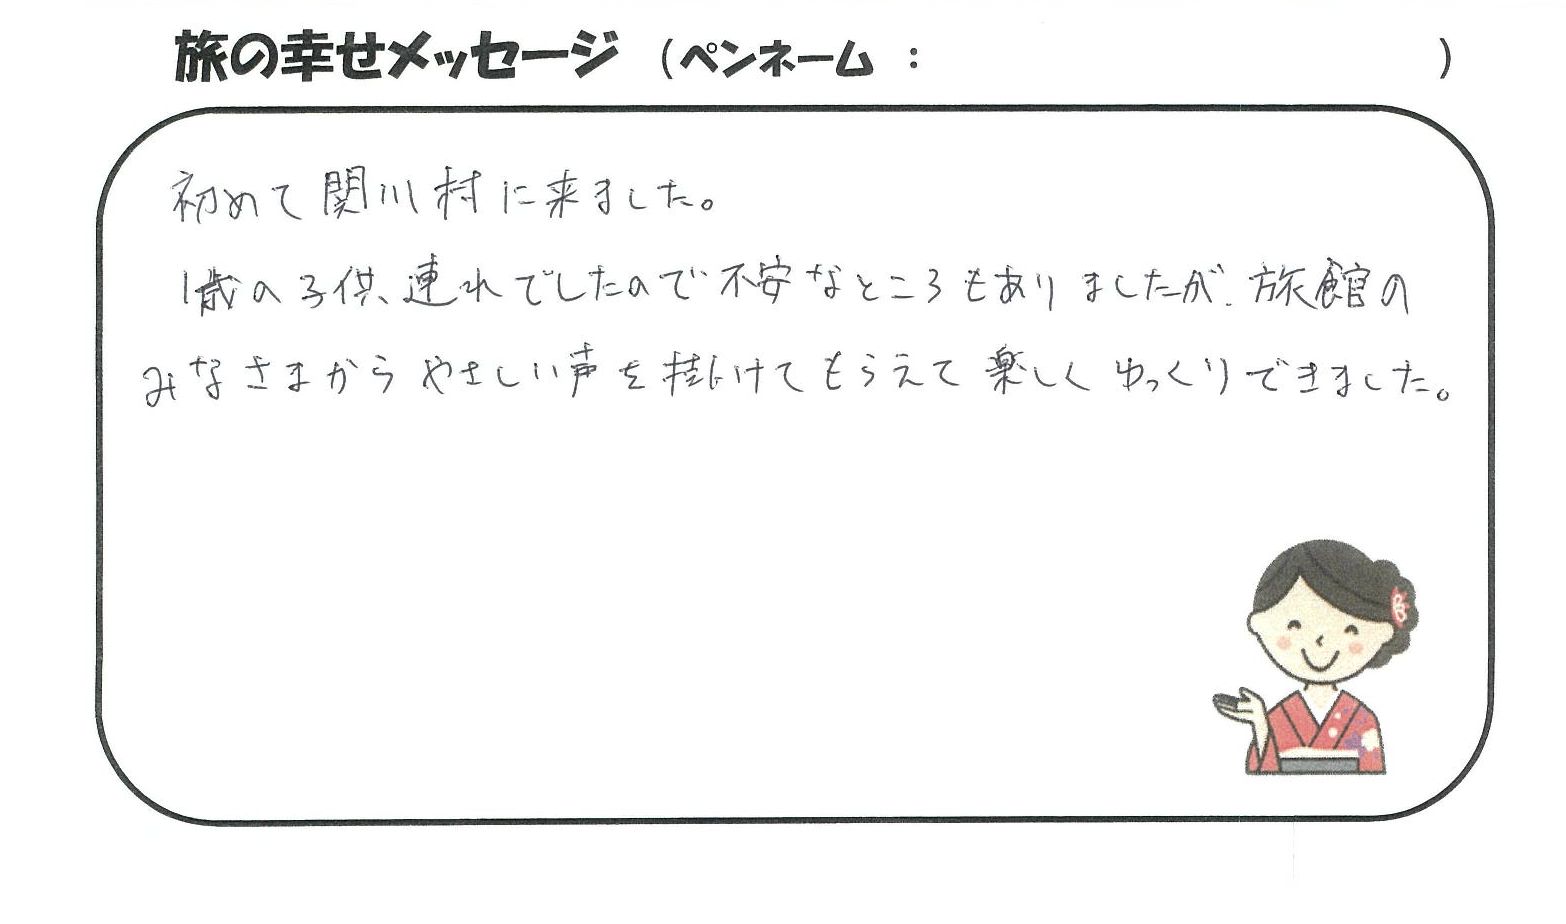 旅の幸せメッセージ (ペンネーム : )
初めて関川村に来ました。
1歳の子供、連れでしたので不安なところもありましたが、旅館の
みなさまからやさしい声を掛けてもらえて楽しくゆっくりできました。